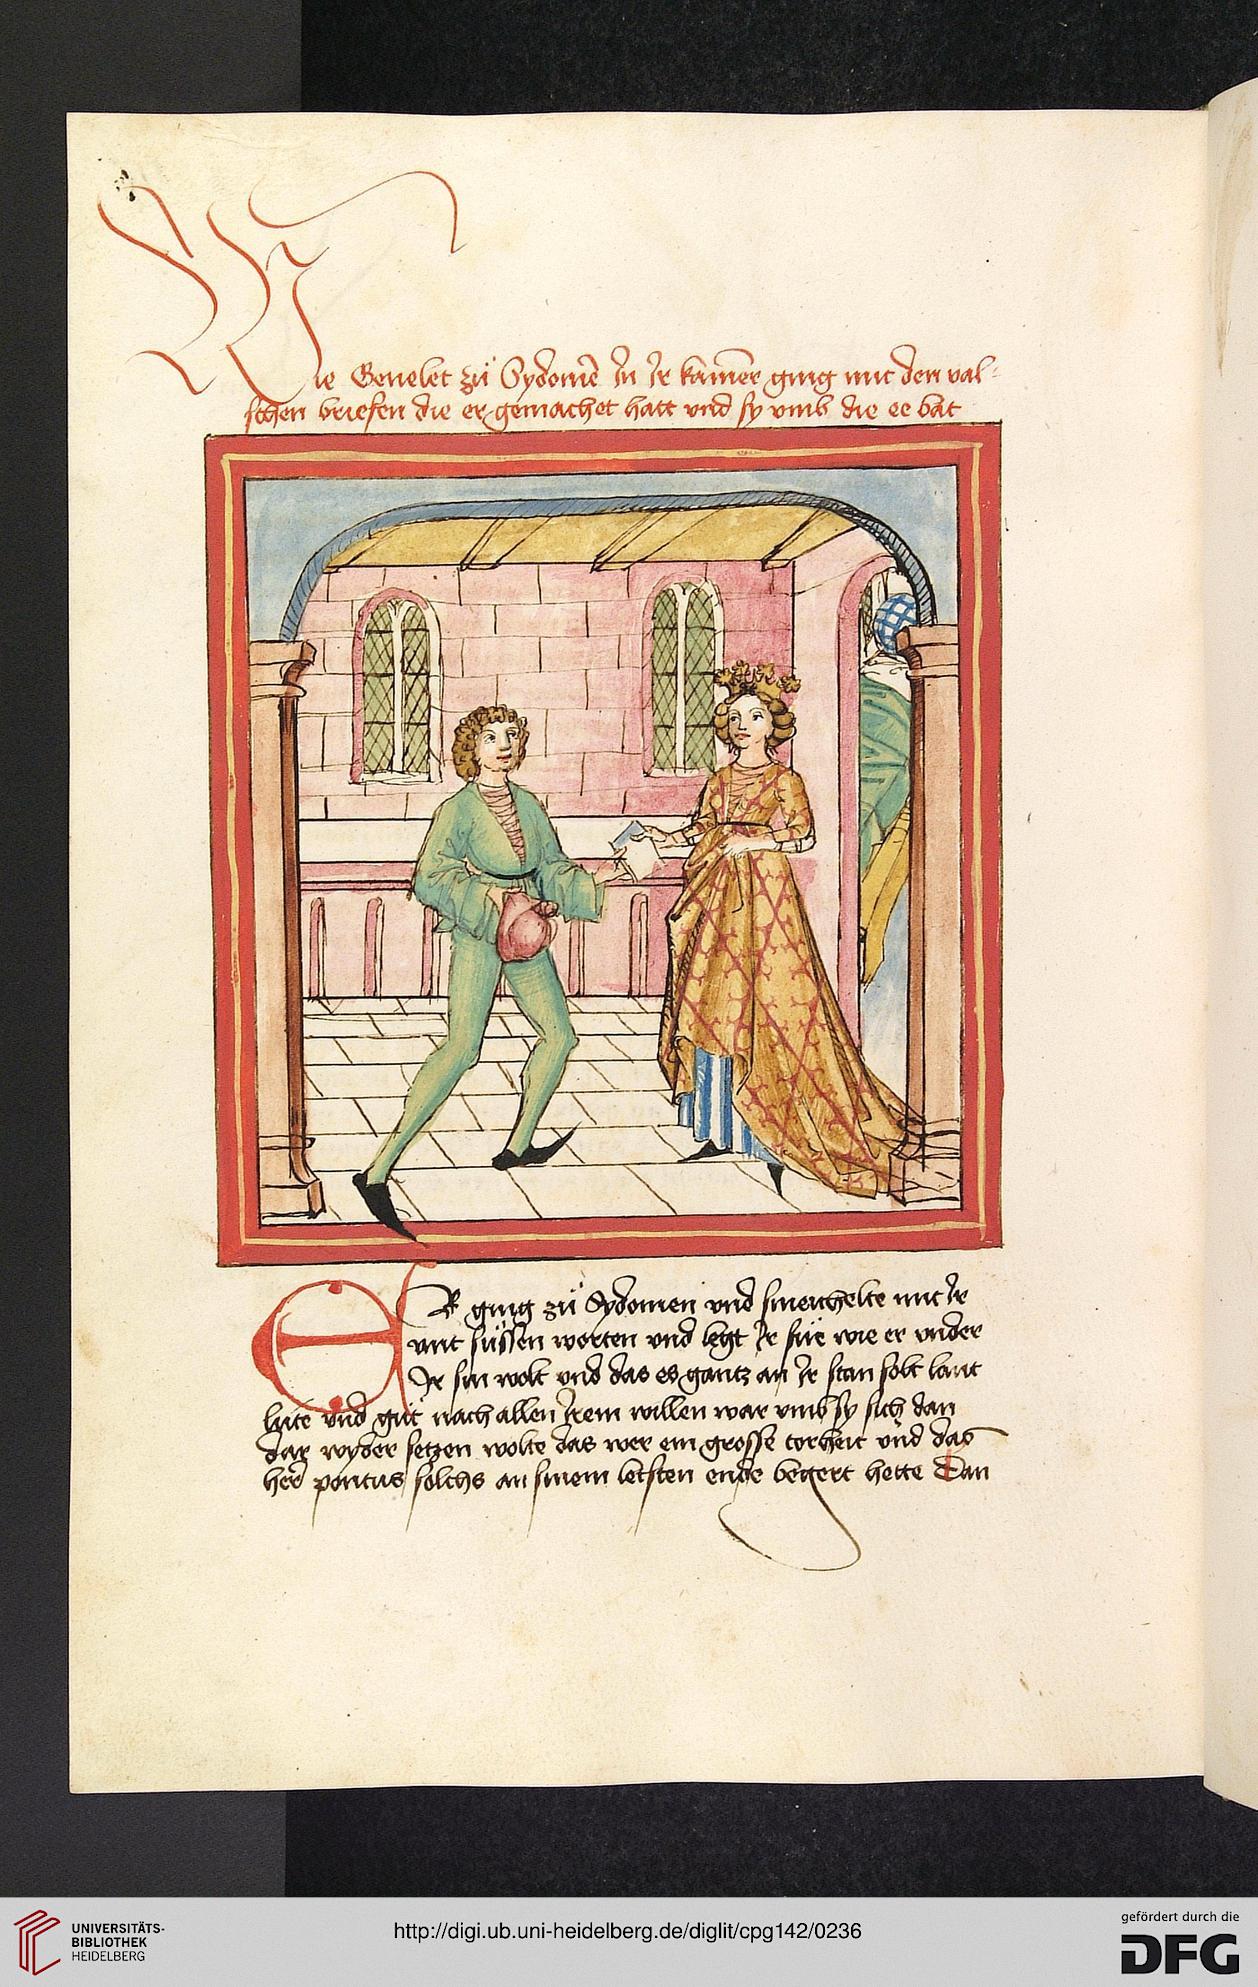 Wie Genelet zů Sydonie In Ir kamer ging mit den val-
schen briefen die er gemachet hatt vnd sy vmb die ee bat
ER ging zů Sydonien vnd smeichelte mit Ir
mit sůssen worten vnd legt Ir fúr wie er vnder
Ir sin wolt vnd das es gantz an Ir stan solt lant
lute vnd gůt nach allen Irem willen war vmb sy sich dan
dar wyder setzen wolte das wer ein grosse torheit vnd das
herr pontus solchs an sinem letsten ende begert hette Dan
UNIVERSITÄTS-
BIBLIOTHEK
HEIDELBERG
http://digi.ub.uni-heidelberg.de/diglit/cpg142/0236
gefördert durch die
DFG